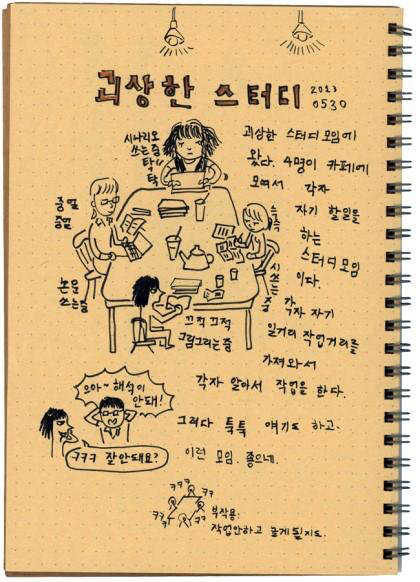 괴상한 스터디
2013
0530
시나리오
쓰는중
탁
탁
중얼
중얼
논문
쓰는중
슥슥
시
쓰는
중
끄적 끄적
그림그리는중
괴상한 스터디 모임에
왔다. 4명이 카페에
모여서 각자
자기 할일을
하는
스터디 모임
이다.
각
각자 자기
일거리 작업거리를
가져와서
각자 알아서 작업을 한다.
그러다 툭툭 얘기도 하고.
이런 모임. 좋으네.
으아~ 해석이
안돼!
ㅋㅋㅋ 잘안돼요?
ㅋㅋㅋ
ㅋㅋㅋ
ㅋㅋㅋ
부작용:
작업안하고 놀게될지도.